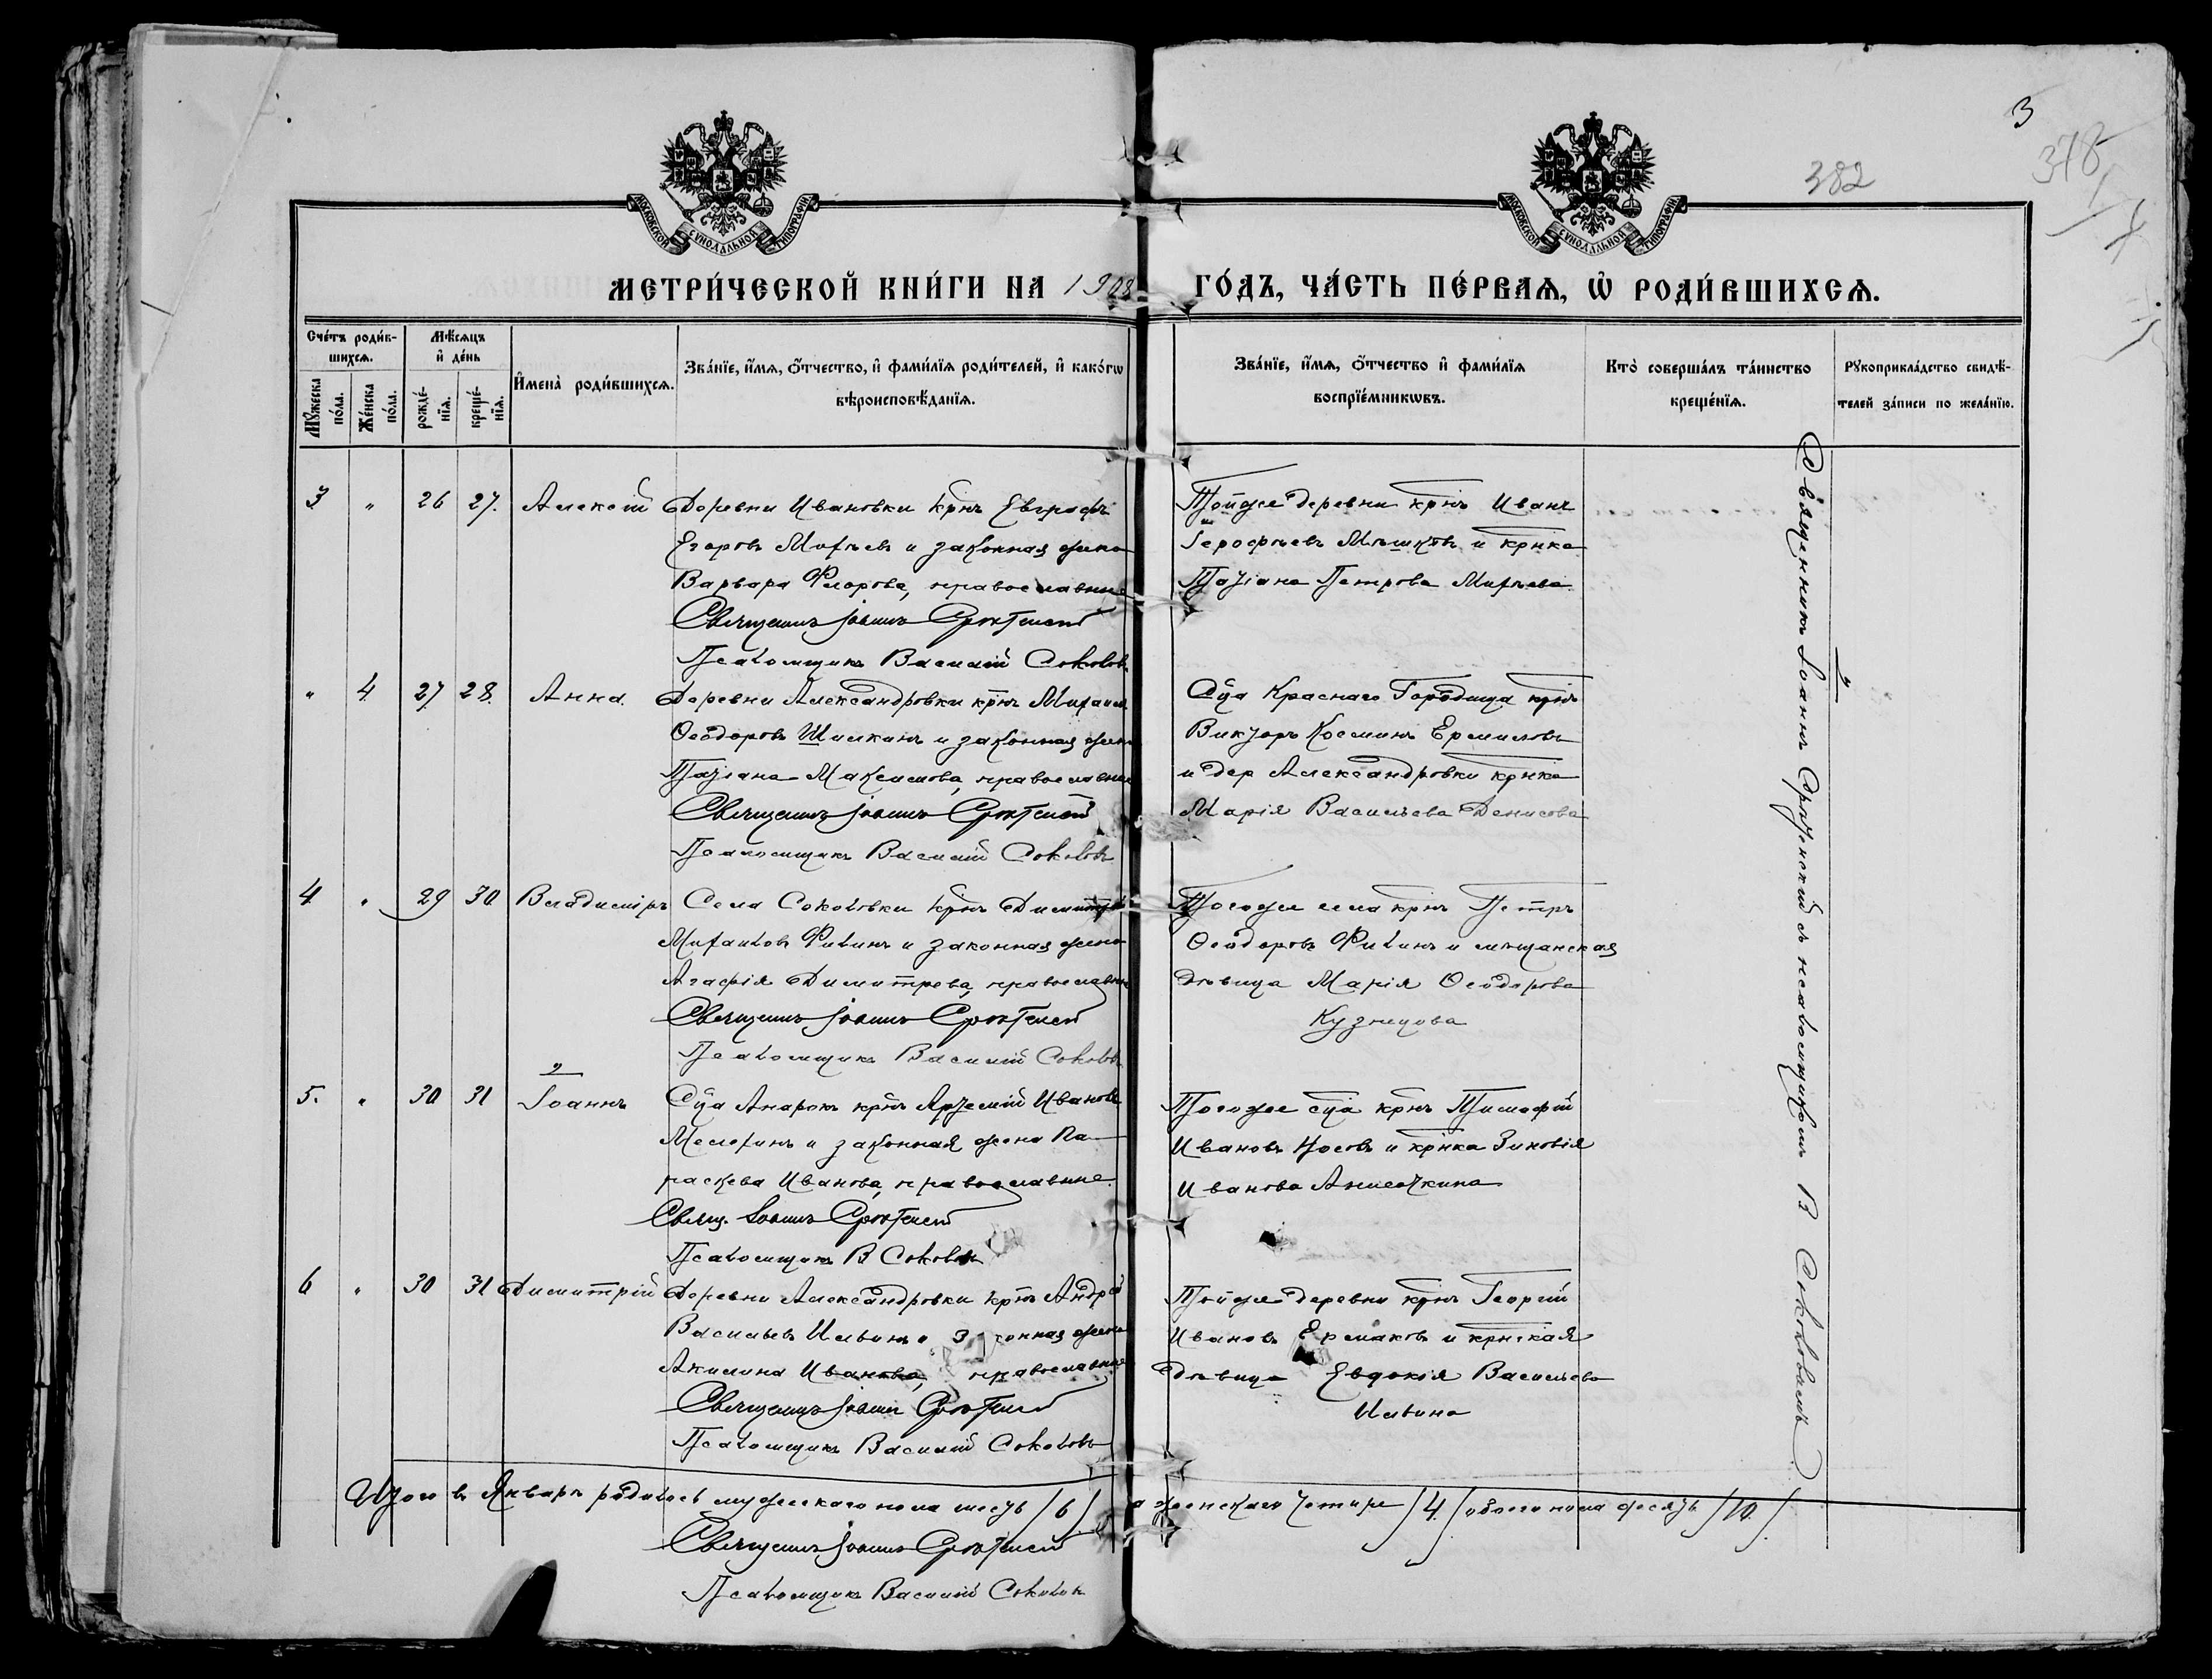 3
382
378
МОСКОВСКОЙ СѴНОДАЛЬНОЙ ТИПОГРАФІИ
МОСКОВСКОЙ СѴНОДАЛЬНОЙ ТИПОГРАФІИ
МЕТРИ́ЧЕСКОЙ КНИ́ГИ НА 1908 ГО́ДЪ, ЧА́СТЬ ПЕ́РВАѦ, Ѽ РОДИ́ВШИХСѦ.
Сче́тъ роди́в-
шихсѧ.
Мꙋ́жеска по́ла.
Же́нска по́ла.
Мѣ́сѧцъ
и҆ де́нь
рожде́-
нїѧ.
креще́-
нїѧ.
И҆мена̀ роди́вшихсѧ.
Зва́нїе, и҆́мѧ, ѻ҆́тчество, и҆ фами́лїѧ роди́телей, и҆ како́гѡ
вѣроисповѣ́данїѧ.
Зва́нїе, и҆́мѧ, ѻ҆́тчество и҆ фами́лїѧ
воспрїе́мникѡвъ.
Кто̀ соверша́лъ та́инство
креще́нїѧ.
Рꙋкоприкла́дство свидѣ́-
телей за́писи по жела́нїю.
3 " 26 27. Алексій Деревни Ивановки крнъ Евграфъ
Егоровъ Михѣевъ и законная жена
Варвара Флорова, православные
Священникъ Іоаннъ
Псаломщикъ Василій Соколовъ
Тойже деревни крнъ Иванъ
Герофѣевъ Мѣшковъ и крнка
Татіана Петрова Михѣева
" 4 27 28. Анна. Деревни Александровки крнъ Михаилъ
Ѳеодоровъ Шишкинъ и законная жена
Татіана Максимова, православные
Священникъ Іоаннъ
Псаломщикъ Василій Соколовъ
Сѣа Краснаго Городища крнъ
Викторъ Косминъ Ермиловъ
и дер Александровки крнка
Марія Васильева Денисова
4 " 29 30 Владиміръ Села Соколовки крнъ Димитрій
Михаиловъ Филинъ и законная жена
Агафія Димитрева, православные
Священникъ Іоаннъ
Псаломщикъ Василій Соколовъ
Тогоже села крнъ Петръ
Ѳеодоровъ Филинъ и мѣщанская
дѣвица Марія Ѳеодорова
Кузнецова
5. " 30 31 Іоаннъ Сѣа Анарокъ крнъ Артемій Ивановъ
и законная жена Па-
раскева Иванова, православные.
Свящ. Іоаннъ
Псаломщикъ В Соколовъ
Тогоже сѣа крнъ Тимофей
Ивановъ Носовъ и крнка Зиновія
Иванова Анисочкина
6 " 30 31 Димитрій Деревни Александровки крнъ Андрей
Васильевъ Ильинъ и законная жена
Акилина Иванова, православные
Священникъ Іоаннъ
Псаломщикъ Василій Соколовъ
Тойже деревни крнъ Георгій
Ивановъ Ермаковъ и крнская
дѣвица Евдокія Васильева
Ильина
Священникъ Іоаннъ съ псаломщикомъ В Соколовымъ
Итого въ Январѣ родилось мужескаго пола шесть /6/ а женскаго четыре /4/ обоего пола десять /10/.
Священникъ Іоаннъ
Псаломщикъ Василій Соколовъ